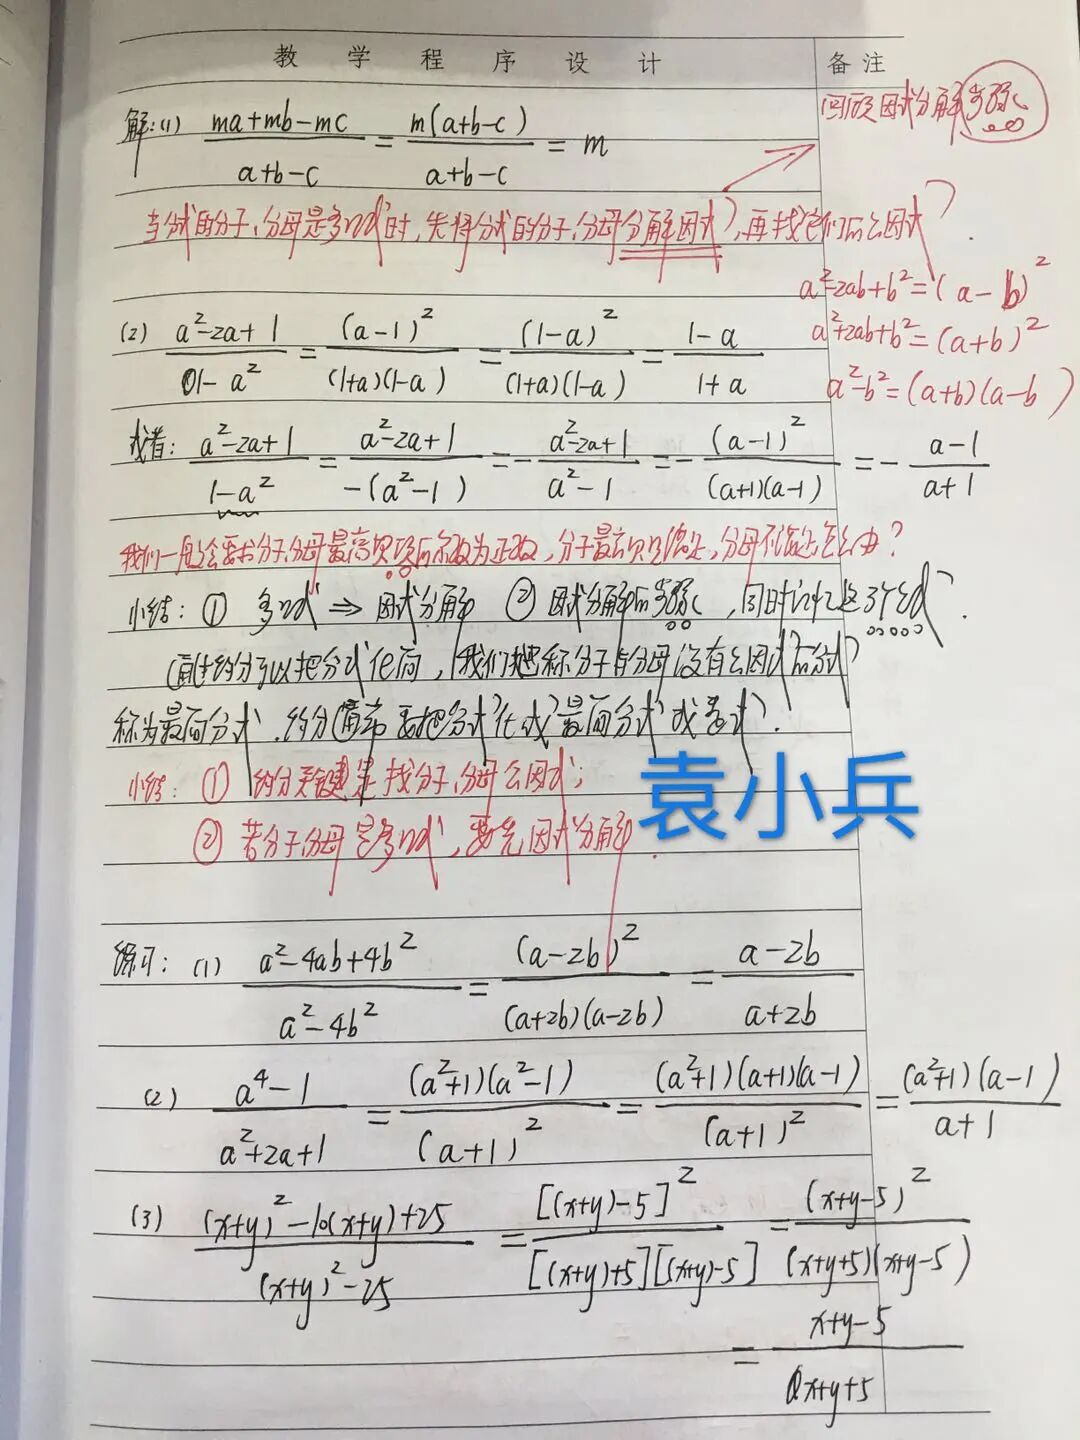 教 学 程 序 设 计
备注
回顾因式分解步骤
解:(1) (ma+mb-mc)/(a+b-c) = m(a+b-c)/(a+b-c) = m
当分式的分子、分母是多项式时,先将分式的分子、分母分解因式,再找它们的公因式.
a²-2ab+b²=(a-b)²
a²+2ab+b²=(a+b)²
a²-b²=(a+b)(a-b)
(2) (a²-2a+1)/(1-a²) = (a-1)²/(1+a)(1-a) = (1-a)²/(1+a)(1-a) = (1-a)/(1+a)
或者: (a²-2a+1)/(1-a²) = (a²-2a+1)/-(a²-1) = -(a²-2a+1)/(a²-1) = -(a-1)²/(a+1)(a-1) = -(a-1)/(a+1)
我们一般会要求分子、分母最高次项系数为正数,分子最高次
小结: ① 多项式 ⇒ 因式分解 ② 因式分解的步骤,同时记忆这3个公式.
通过约分可以把分式化简,我们把称分子与分母没有公因式的分式
称为最简分式.约分通常要把分式化成最简分式或整式.
小结: ① 约分关键是找分子、分母公因式;
② 若分子分母是多项式,要先因式分解.
袁小兵
练习: (1) (a²-4ab+4b²)/(a²-4b²) = (a-2b)²/(a+2b)(a-2b) = (a-2b)/(a+2b)
(2) (a⁴-1)/(a²+2a+1) = (a²+1)(a²-1)/(a+1)² = (a²+1)(a+1)(a-1)/(a+1)² = (a²+1)(a-1)/(a+1)
(3) ((x+y)²-10(x+y)+25)/((x+y)²-25) = [(x+y)-5]²/[(x+y)+5][(x+y)-5] = (x+y-5)²/(x+y+5)(x+y-5)
= (x+y-5)/(x+y+5)